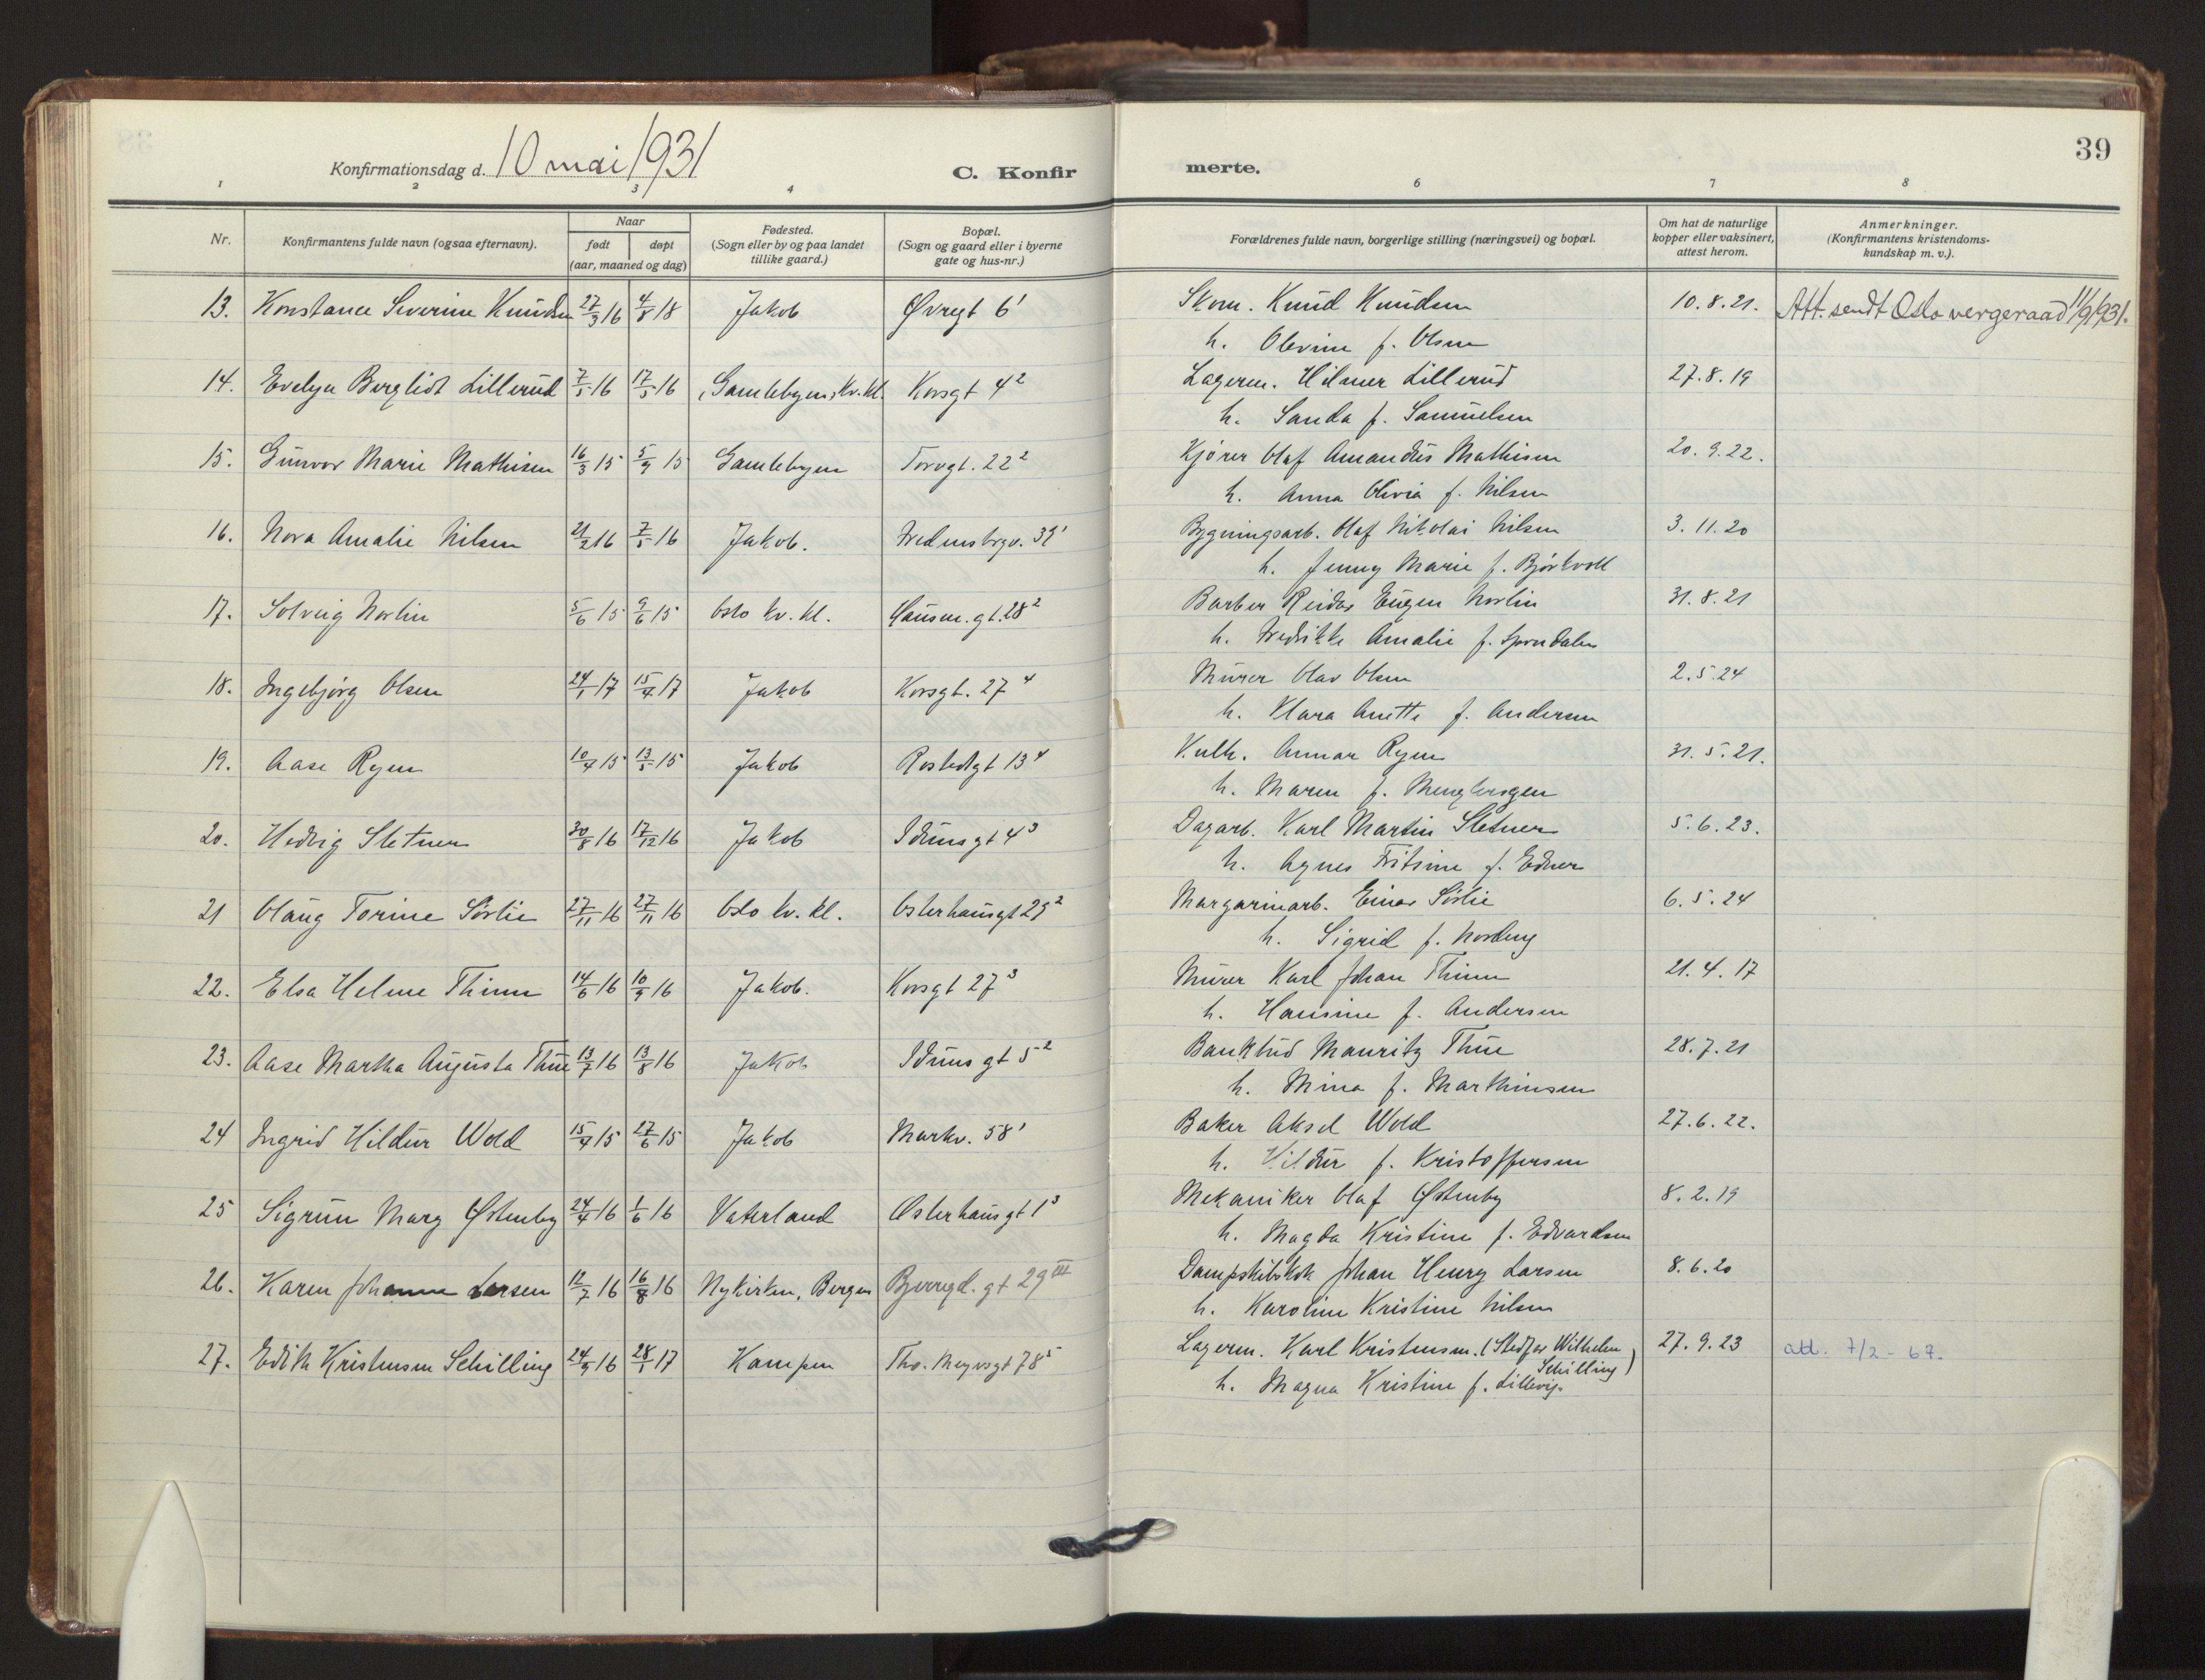 39
Konfirmationsdag d. 10 mai 1931
C. Konfirmerte.
1 2 3 4 6 7 8
Nr.
Konfirmantens fulde navn (ogsaa efternavn).
Naar
født døpt
(aar, maaned og dag)
Fødested.
(Sogn eller by og paa landet
tillike gaard.)
Bopæl.
(Sogn og gaard eller i byerne
gate og hus-nr.)
Forældrenes fulde navn, borgerlige stilling (næringsvei) og bopæl.
Om hat de naturlige
kopper eller vaksinert,
attest herom.
Anmerkninger.
(Konfirmantens kristendoms-
kundskap m. v.).
13. Konstance Severine Knudsen 27/3 16 4/8 18 Jakob Øvregt 6¹ Skom. Knud Knudsen 10.8.21. Att. sendt Oslo vergeraad 11/9 1931.
h. Olevine f. Olsen
14. Evelyn Bergliot Lillerud 7/5 16 17/5 16 Gamlebyens kv. kl. Korsgt 4² Lagerm. Hilmer Lillerud 27.8.19
h. Sanda f. Samuelsen
15. Gunvor Marie Mathisen 16/3 15 5/9 15 Gamlebyen Torvgt. 22² Kjører Olaf Amandus Mathisen 20.9.22.
h. Anna Olivia f. Nilsen
16. Nora Amalie Nilsen 21/2 16 7/5 16 Jakob. Fredensbrgv. 39¹ Bygningsarb. Olaf Nikolai Nilsen 3.11.20
h. Jenny Marie f. Bjørkvoll
17. Solveig Norlin 5/6 15 9/6 15 Oslo kv. kl. Hausm. gt. 28² Barber Reidar Eugen Norlin 31.8.21
h. Fredrikke Amalie f.
18. Ingebjørg Olsen 24/1 17 15/4 17 Jakob Korsgt. 27⁴ Murer Olav Olsen 2.5.24
h. Klara Anette f. Andersen
19. Aase Ryen 10/4 15 13/5 15 Jakob Rostedgt 13⁴ Gunnar Ryen 31.5.21.
h. Maren f.
20. Hedvig Sletner 30/8 16 17/12 16 Jakob Idunsgt 4³ Dagarb. Karl Martin Sletner 5.6.23.
h. Agnes Fritsine f. Edner
21 Olaug Torine Sørlie 27/11 16 27/11 16 Oslo kv. kl. Osterhausgt 29² Margarinarb. Einar Sørlie 6.5.24
h. Sigrid f. Norberg
22. Elsa Helene Thinn 14/6 16 10/9 16 Jakob. Korsgt 27³ Murer Karl Johan Thinn 21.4.17
h. Hansine f. Andersen
23. Aase Martha Augusta Thue 13/7 16 13/8 16 Jakob Iduns gt 5² Bankbud Mauritz Thue 28.7.21
h. Mina f. Marthinsen
24 Ingrid Hildur Wold 15/4 15 27/6 15 Jakob Markv. 58¹ Baker Aksel Wold 27.6.22.
h. Hildur f. Kristoffersen
25 Sigrun Mary Østenby 24/4 16 1/6 16 Vaterland Osterhausgt 1³ Mekaniker Olaf Østenby 8.2.19
h. Magda Kristine f. Edvardsen
26. Karen Johanne Larsen 12/7 16 16/8 16 Nykirken, Bergen Bjerregd. gt 29 III Dampskibskok Johan Henry Larsen 8.6.20
h. Karoline Kristine Nilsen
27. Edith Kristensen Schilling 24/9 16 28/1 17 Kampen Tho. Meyersgt 78⁵ Lagerm. Karl Kristensen. (Stedfar Wilhelm 27.9.23 att. 7/2 - 67.
Schilling)
h. Magna Kristine f. Lillevig.